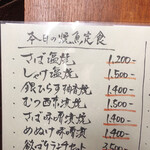 本日の焼魚定食
さば塩焼 1,200-
しゃけ塩焼 1,500-
銀ひらす 1,400-
むつ西京焼 1,500-
さば味噌煮 1,400-
めぬけ味噌漬 1,400-
銀だらランチセット 3,500-